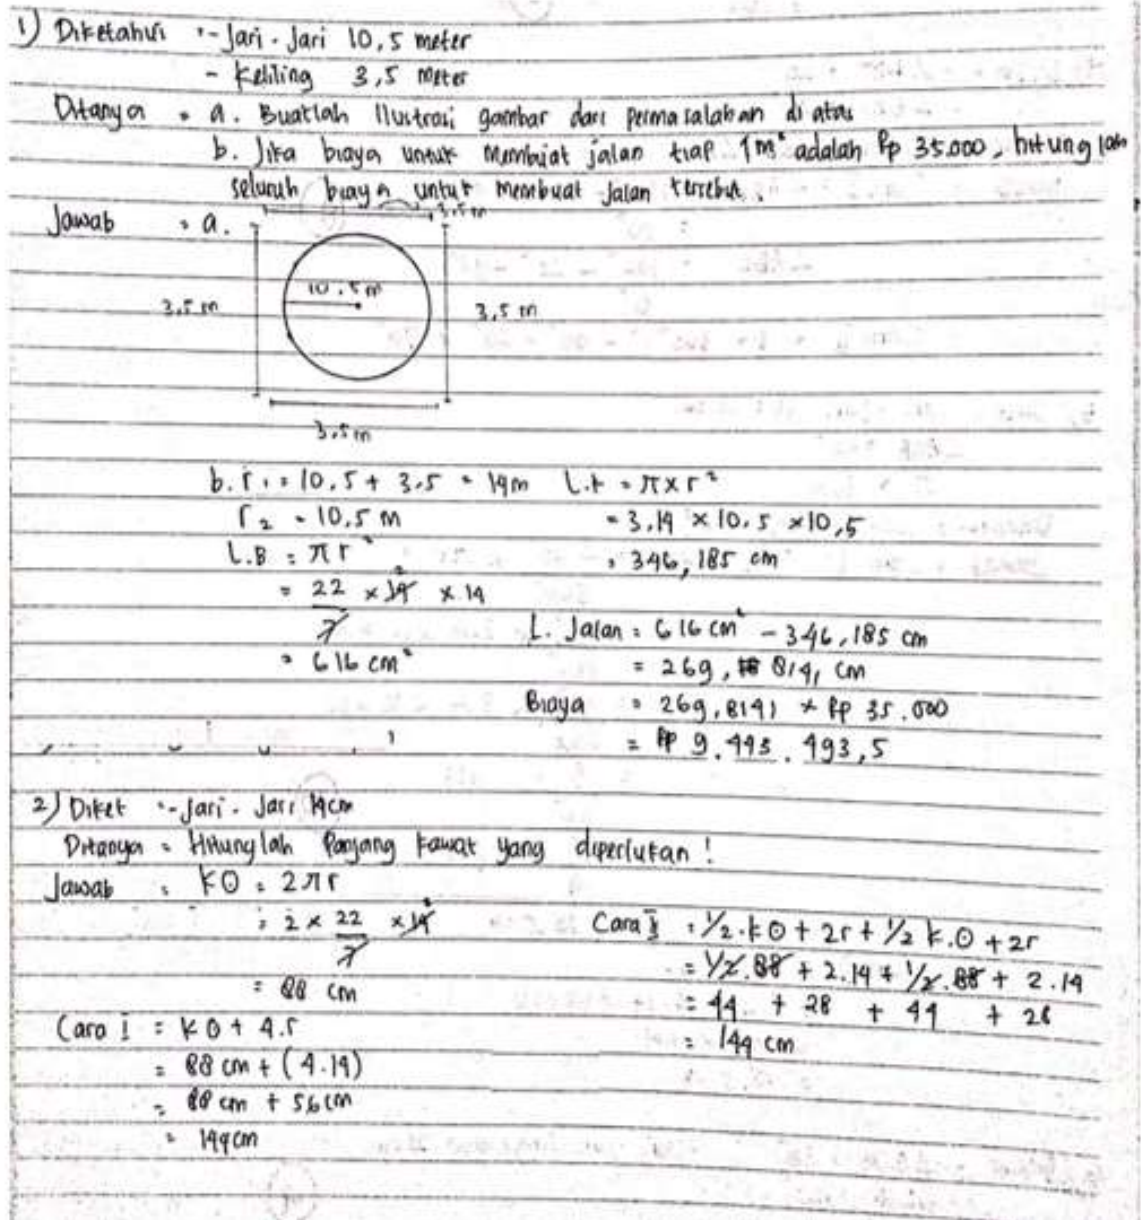 1) Diketahui :- Jari - Jari 10,5 meter
- Keliling 3,5 Meter
Ditanya = a. Buatlah Ilustrasi gambar dari permasalahan di atas
b. Jika biaya untuk Membuat jalan tiap 1m² adalah Rp 35.000, hitunglah
seluruh biaya untuk membuat jalan tersebut.
Jawab = a.
3,5 m
10,5 m
3,5 m
3,5 m
3,5 m
b. r₁ = 10,5 + 3,5 = 14m L.k = π x r²
r₂ = 10,5 M = 3,14 × 10,5 × 10,5
L.B = π r² = 346,185 cm
= 22/7 × 14 × 14 2
= 616 cm² L. Jalan = 616 cm² - 346,185 cm
= 269, 814, cm
Biaya = 269,8141 × Rp 35.000
= Rp 9.443.493,5
2) Diket :- Jari - Jari 14cm
Ditanya = Hitunglah Panjang kawat yang diperlukan !
Jawab = k⊙ = 2πr
= 2 × 22/7 × 14 2
= 88 cm
Cara I = k⊙ + 4.r
= 88 cm + (4.14)
= 88 cm + 56 cm
= 144cm
Cara = 1/2.k⊙ + 2r + 1/2 k.⊙ + 2r
= 1/2.88 + 2.14 + 1/2.88 + 2.14
= 44 + 28 + 44 + 28
= 144 cm